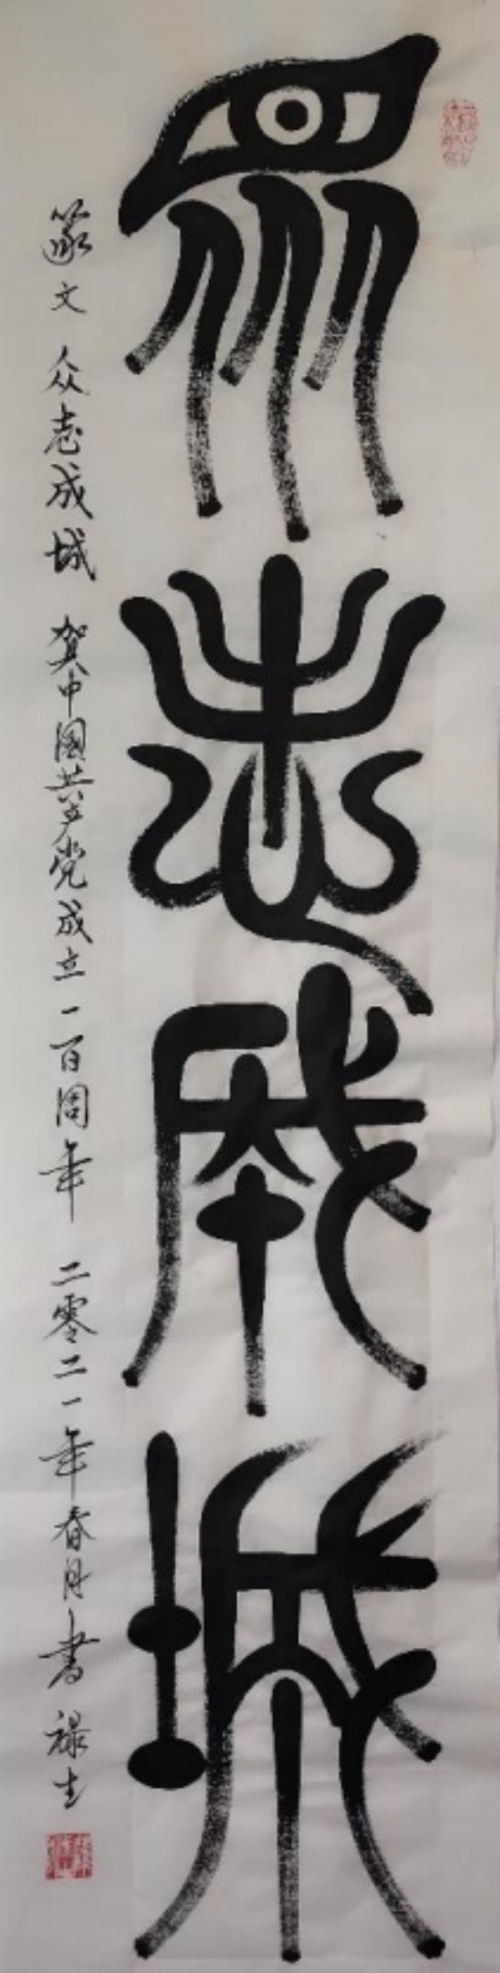 众志成城
篆文 众志成城 贺中国共产党成立一百周年 二零二一年春月书 禄生